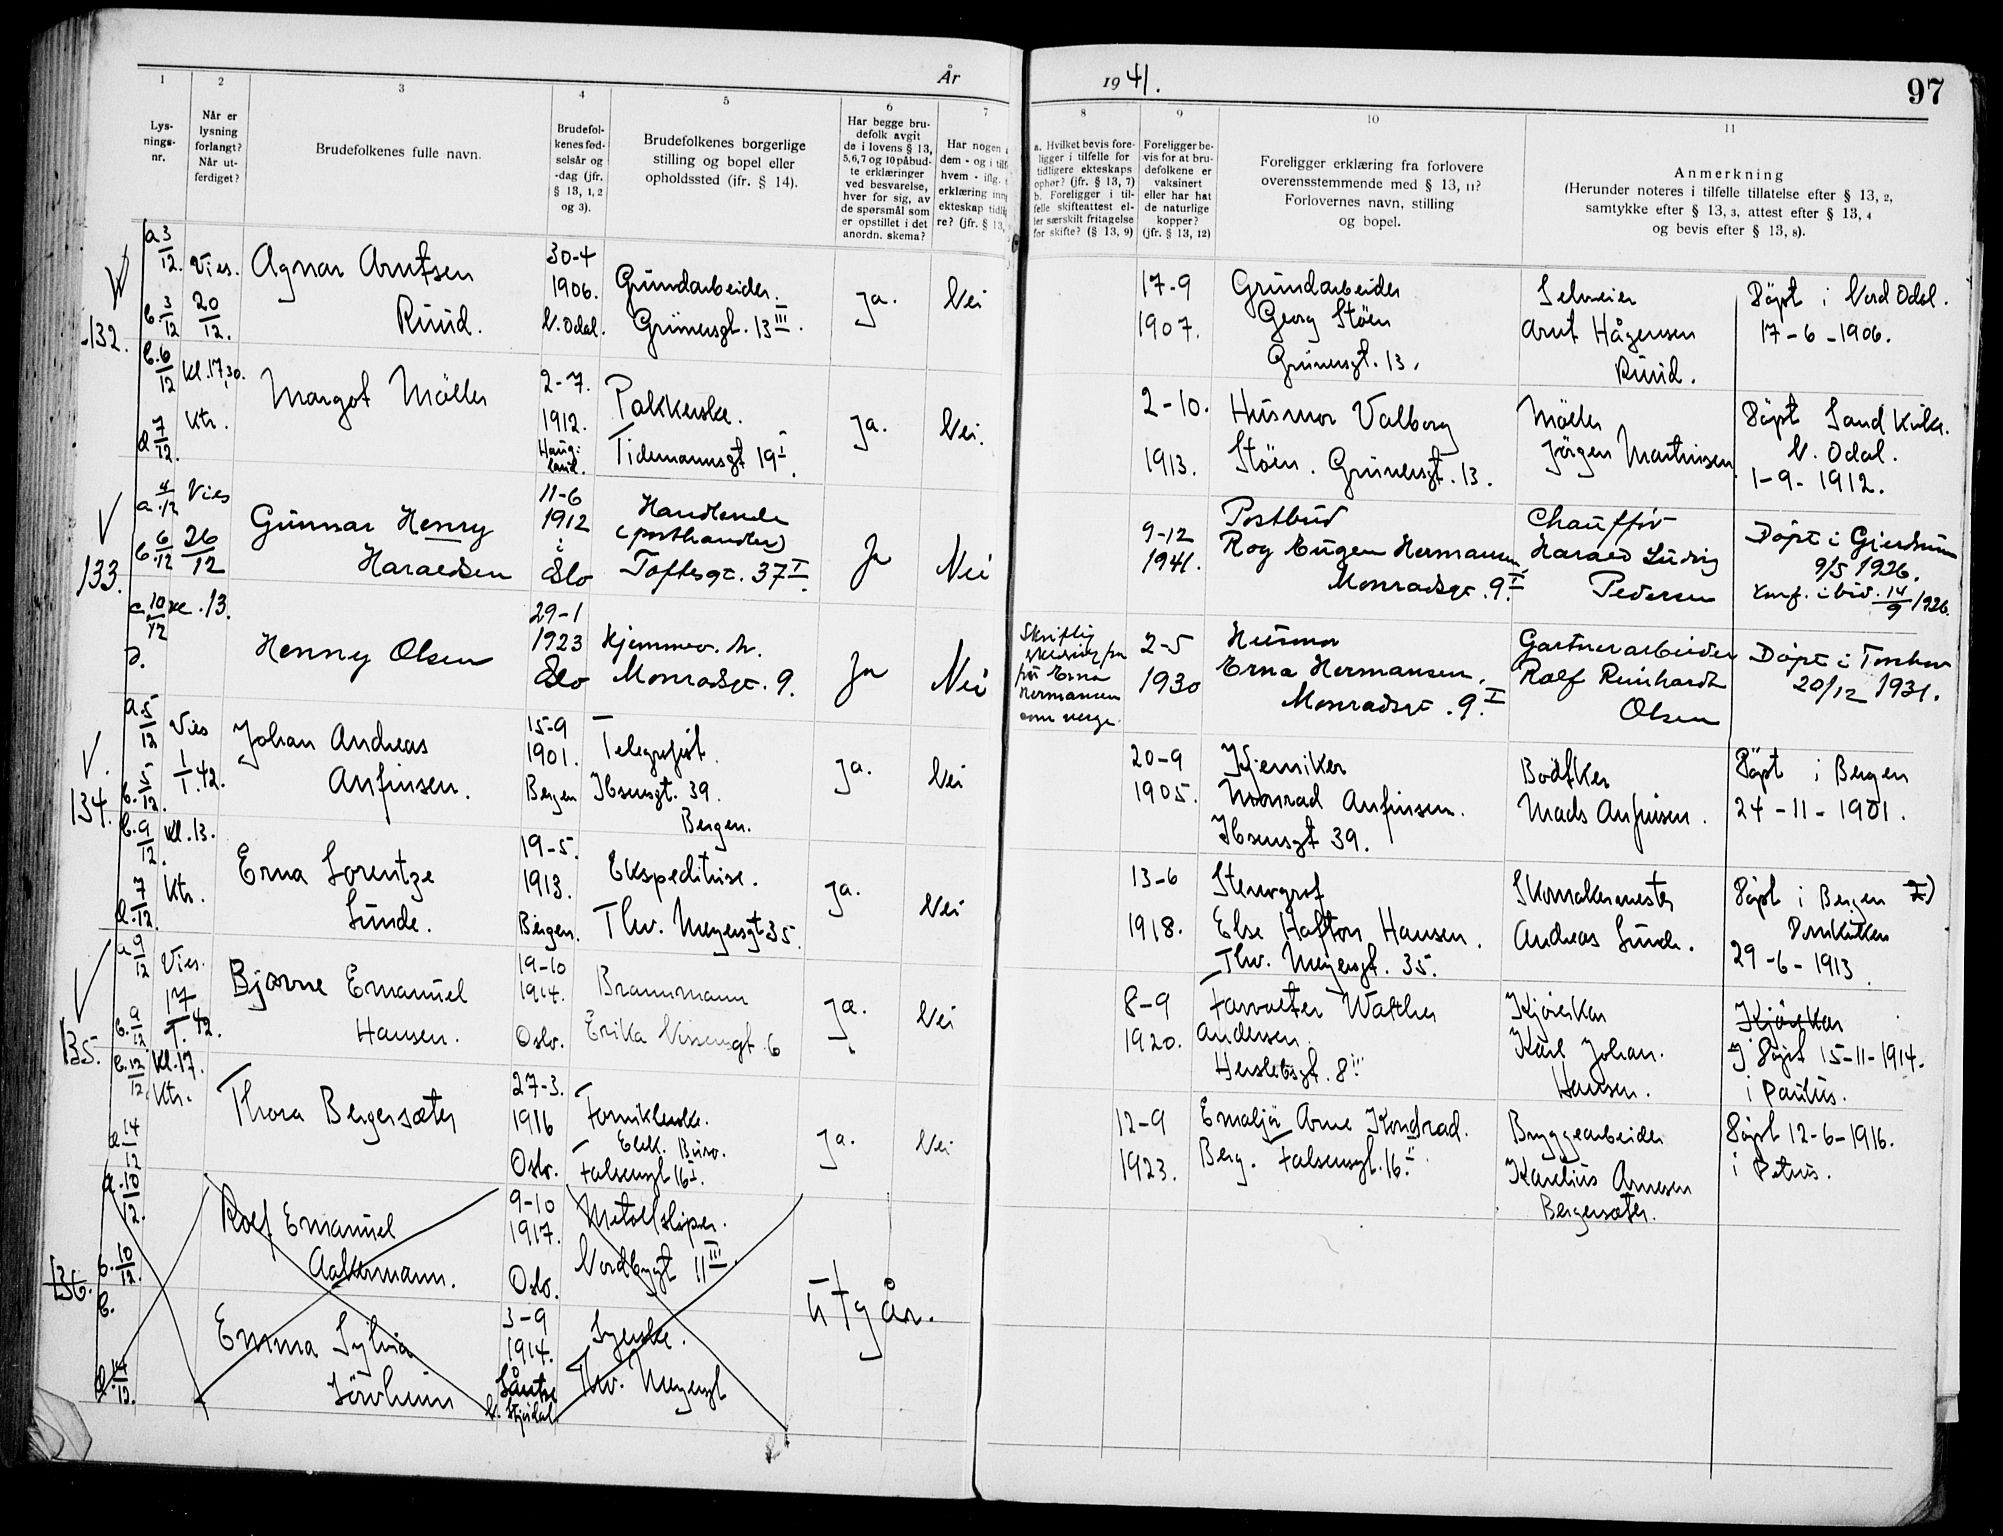 År
1941.
97
1
2
3
4
5
6
7
8
9
10
11
Lys-
nings-
nr.
Når er
lysning
forlangt?
Når ut-
ferdiget?
Brudefolkenes fulle navn.
Brudefol-
kenes fød-
selsår og
-dag (jfr.
§ 13, 1, 2
og 3).
Brudefolkenes borgerlige
stilling og bopel eller
opholdssted (jfr. § 14).
Har begge bru-
defolk avgit
de i lovens § 13,
5,6,7 og 10 påbud-
te erklæringer
ved besvarelse,
hver for sig, av
de spørsmål som
er opstillet i det
anordn. skema?
Har nogen
dem - og i tilf
hvem - iflg.
erklæring inn
ekteskap tidli
re? (jfr. § 13,
a. Hvilket bevis fore-
ligger i tilfelle for
tidligere ekteskaps
ophør? (jfr. § 13, 7)
b. Foreligger i til-
felle skifteattest el-
ler særskilt fritagelse
for skifte? (§ 13, 9)
Foreligger be-
vis for at bru-
defolkene er
vaksinert
eller har hat
de naturlige
kopper?
(jfr. § 13, 12)
Foreligger erklæring fra forlovere
overensstemmende med § 13, 11?
Forlovernes navn, stilling
og bopel.
Anmerkning
(Herunder noteres i tilfelle tillatelse efter § 13, 2,
samtykke efter § 13, 3, attest efter § 13, 4
og bevis efter § 13, 8).
132.
a 3/12.
b. 3/12
c. 6/12
d 7/12.
Vies.
20/12.
Kl. 17,30.
Ktr.
Agnar Arntsen
Ruud.
30-4
1906.
N. Odal.
Grundarbeider.
Grünersgt. 13 III.
Ja.
Nei
17-9
1907.
Grundarbeider
Georg Støen
Grünersgt. 13.
Selveier
Arnt Hågensen
Ruud.
Døpt i Nord Odal.
17-6-1906.
Margot Møller
2-7.
1912.
Haug-
land.
Pakkerske.
Tidemannsgt 19 I.
Ja.
Nei.
2-10.
1913.
Husmor Valborg
Støen. Grünersgt. 13.
Møller
Jørgen Martinsen
Døpt Sand Kirke.
N. Odal.
1-9-1912.
133.
a. 4/12
b. 6/12
c. 10/12
d.
Vies
26/12
kl. 13.
Gunnar Henry
Haraldsen
11-6
1912
i
Oslo
Handlende
(posthandler)
Toftesgt. 37 I
Ja
Nei
9-12
1941.
Postbud
Roy Eugen Hermansen,
Monradsgt. 9. I
Chauffør
Harald Ludvig
Pedersen
Døpt i Gjerdrum
9/5 1926.
Konf. ibid. 14/9 1926.
Henny Olsen
29-1
1923
Oslo
Hjemmev.
Monradsgt. 9.
Ja
Nei
Skriftlig
erklæring fra
frk Erna
Hermansen
som verge.
2-5
1930
Husmor
Erna Hermansen,
Monradsgt. 9. I
Gartnerarbeider
Rolf Reinhardt
Olsen
Døpt i Torshov
20/12 1931.
134.
a. 5/12
b. 5/12.
c. 9/12.
d. 7/12.
Vies
1/1. 42.
Kl. 13.
Ktr.
Johan Andreas
Anfinsen.
15-9
1901.
Bergen
Telegrafist.
Ibsensgt. 39.
Bergen.
Ja.
Nei
20-9
1905.
Kjemiker
Monrad Anfinsen.
Ibsensgt 39.
Bødtker
Mads Anfinsen.
Døpt i Bergen
24-11-1901.
Erna Lorentze
Sunde.
19-5.
1913.
Bergen.
Ekspeditrise.
Thv. Meyersgt 35.
Ja.
Nei
13-6
1918.
Stenograf
Else Hafton Hansen.
Thv. Meyersgt. 35.
Skomakermester
Andreas Sunde.
Døpt i Bergen
Domkirken
29-6-1913
135.
a 9/12
b. 9/12.
c. 12/12
d 14/12
Vies.
17/1. 42.
Kl. 17.
Ktr.
Bjarne Emanuel
Hansen.
19-10
1914.
Oslo.
Brannmann
Erika Nissensgt. 6
Ja.
Nei
8-9
1920.
Forvalter Walther
Andersen.
Herslebsgt. 8 III
Kjørekar
Karl Johan.
Hansen.
Kjørekar
Døpt 15-11-1914.
i Paulus.
Thora Bergersæter
27-3.
1916
Oslo.
Forniklerske.
Elek. Buro.
Falsensgt 16 I.
Ja.
Nei
12-9
1923.
Emaljør Arne Kondrad.
Berg. Falsensgt. 16 II.
Bryggearbeider
Karelius Arnesen
Bergersæter.
Døpt 12-6-1916.
i Petrus.
136.
a. 10/12.
b. 10/12.
c.
d. 14/12.
Rolf Emanuel
Aakermann.
9-10
1917.
Oslo.
Metallsliper.
Nordbygt 11 III.
Utgår.
Emma Sylvia
Sørheim
3-9
1914.
Syerske.
Thv. Meyersgt